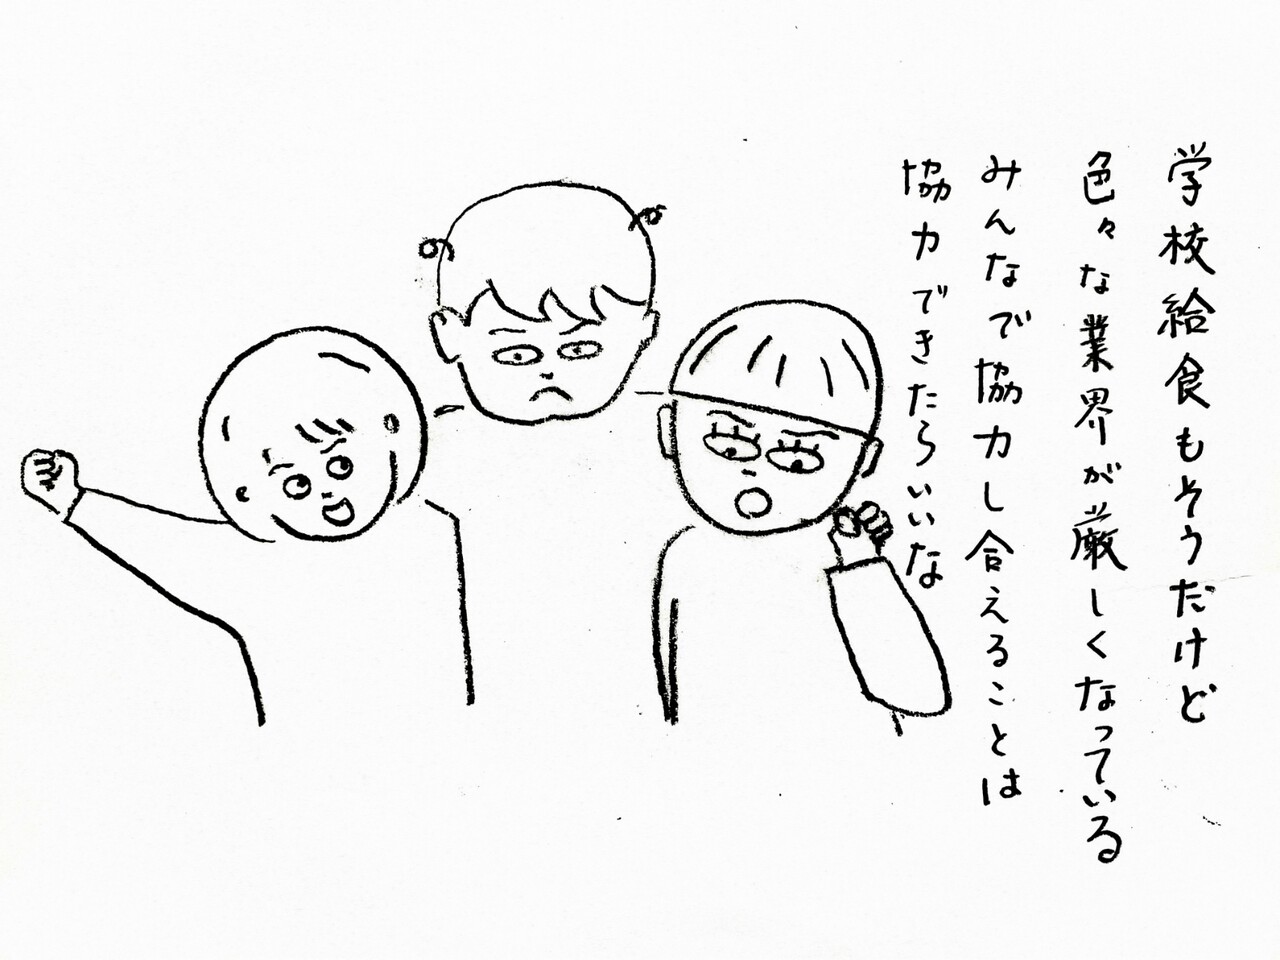 学校給食もそうだけど
色々な業界が厳しくなっている
みんなで協力し合えることは
協力できたらいいな